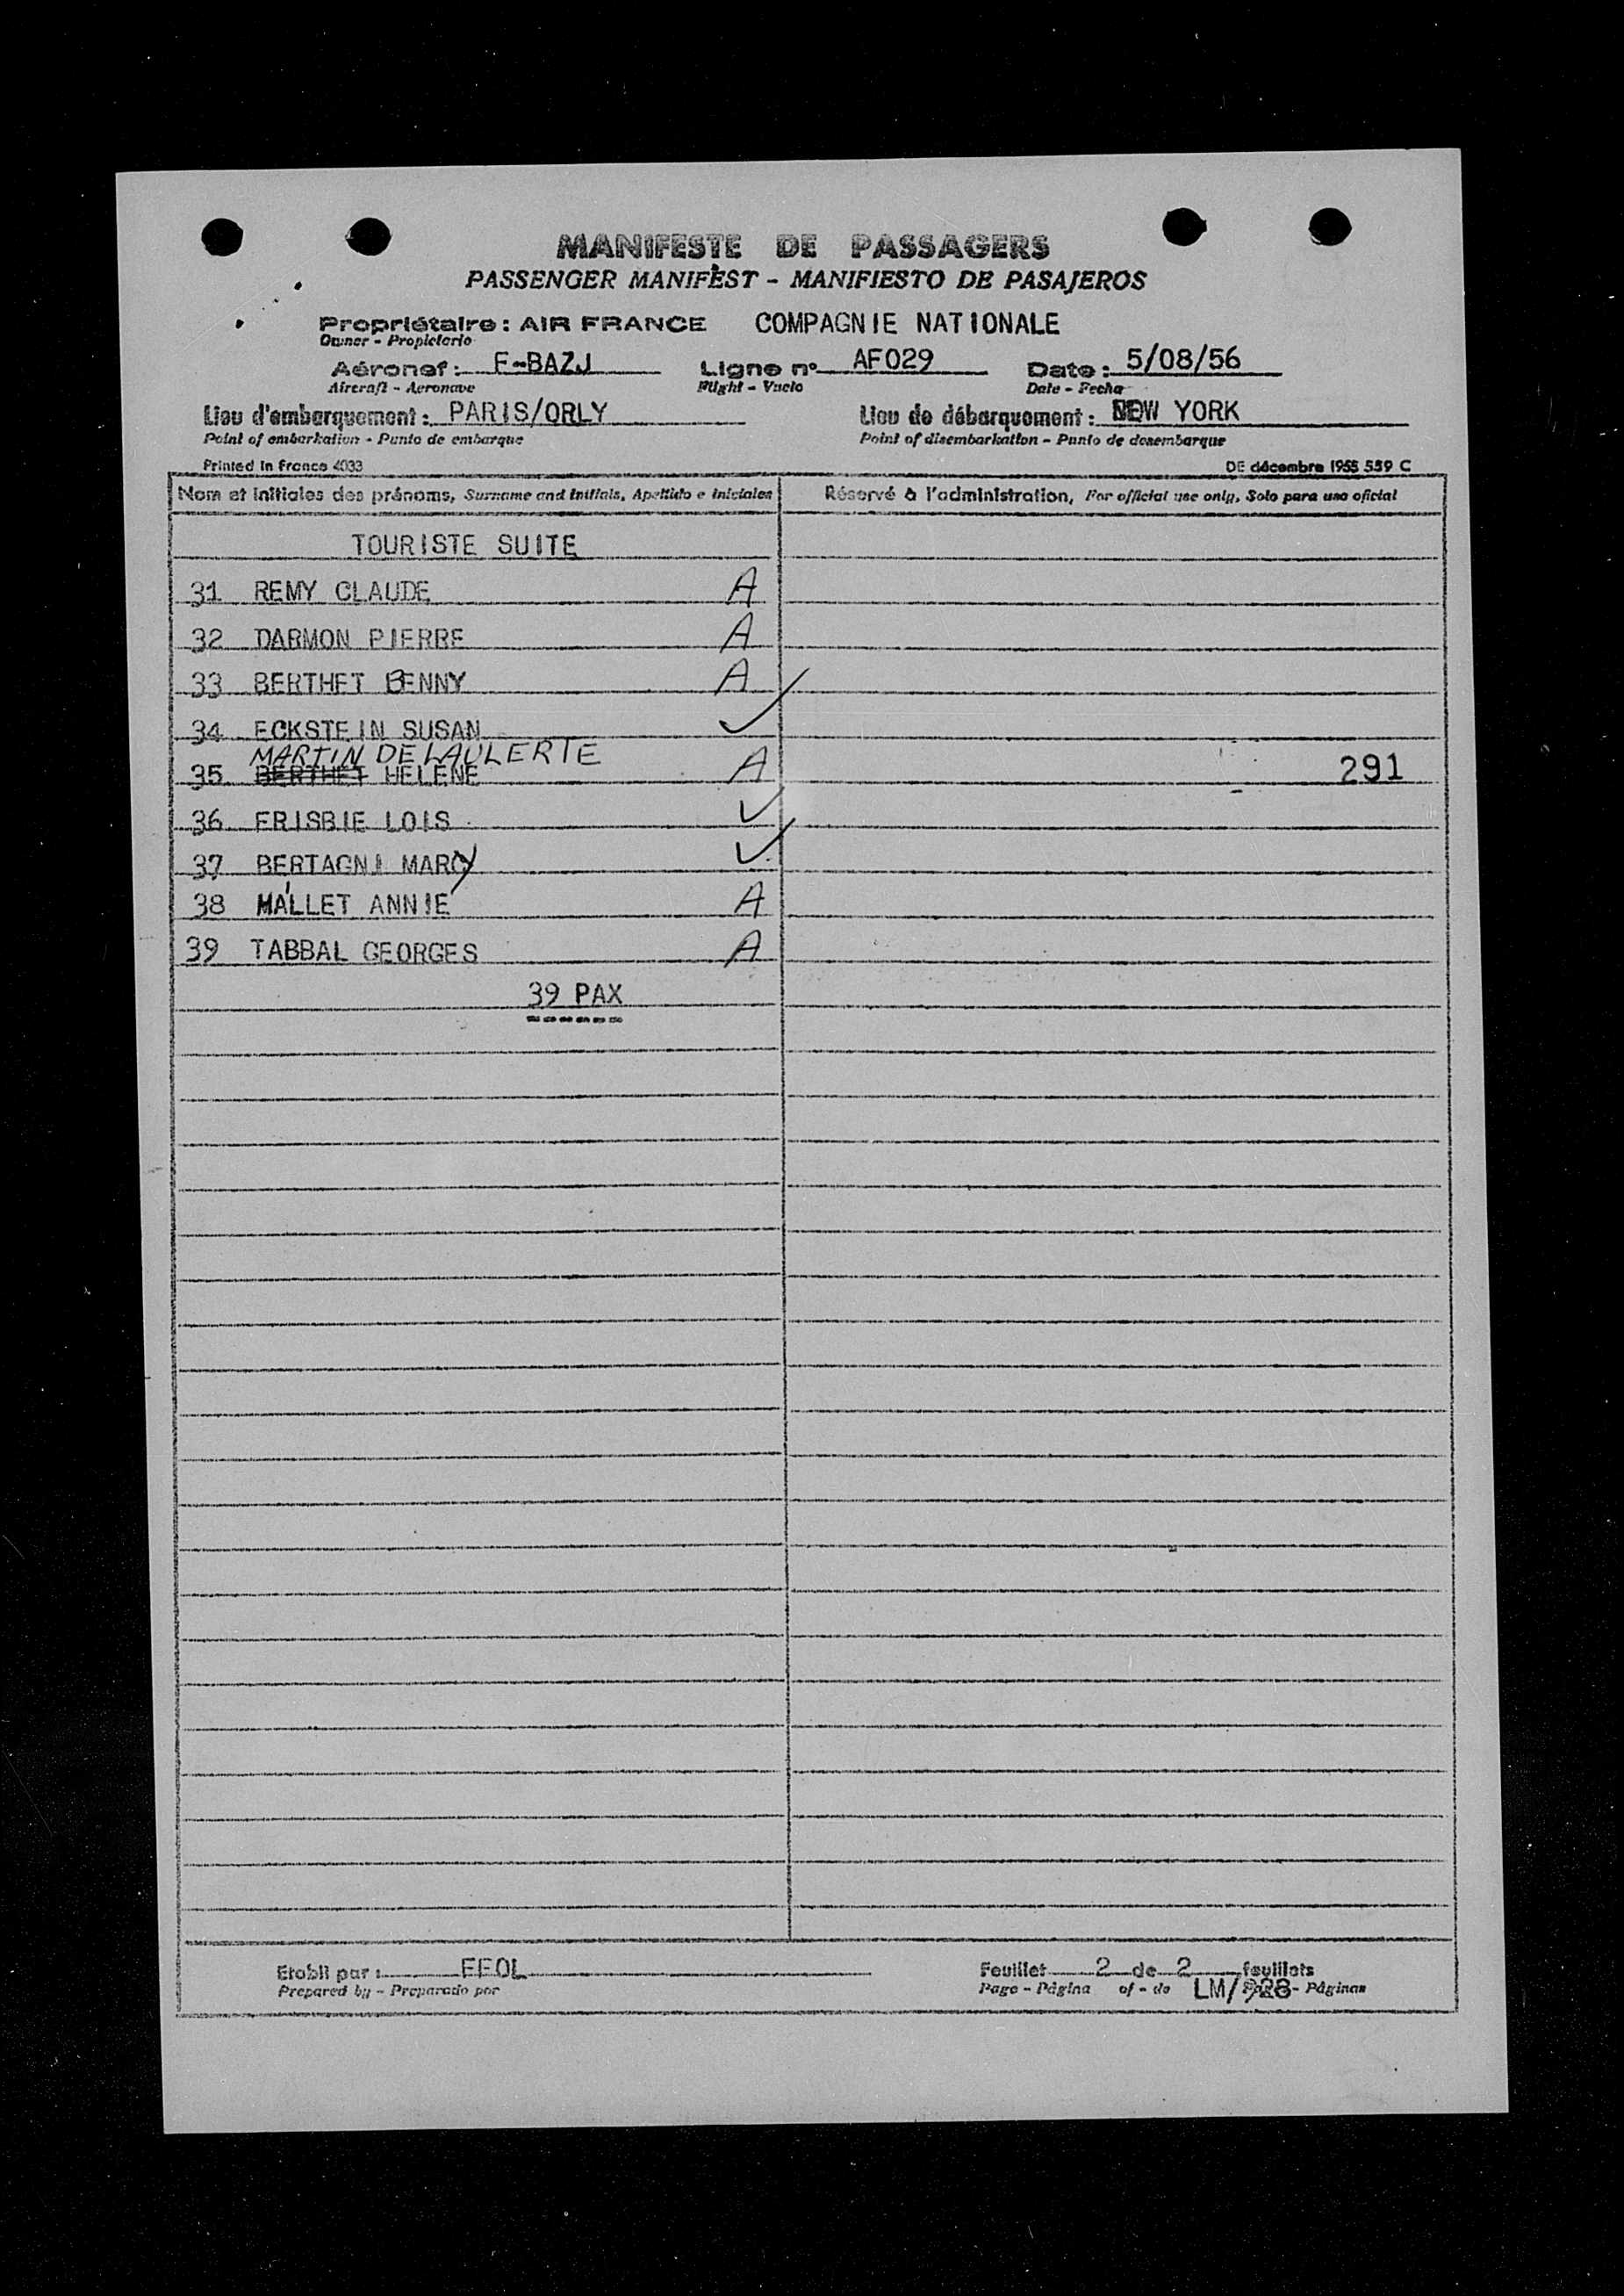 MANIFESTE DE PASSAGERS
PASSENGER MANIFEST - MANIFIESTO DE PASAJEROS
Propriétaire : AIR FRANCE COMPAGNIE NATIONALE
Owner - Propietario
Aéronef : F-BAZJ Ligne n° AF029 Date : 5/08/56
Aircraft - Aeronave Flight - Vuelo Date - Fecha
Lieu d'embarquement : PARIS/ORLY Lieu de débarquement : NEW YORK
Point of embarkation - Punto de embarque Point of disembarkation - Punto de desembarque
Printed in France 4033 DE décembre 1955 559 C
Nom et initiales des prénoms, Surname and initials, Apellido e iniciales Réservé à l'administration, For official use only, Solo para uso oficial
TOURISTE SUITE
31 REMY CLAUDE A
32 DARMON PIERRE A
33 BERTHET BENNY A
34 ECKSTEIN SUSAN ✓
MARTIN DE LAULERTE
35 BERTHET HELENE A 291
36 FRISBIE LOIS ✓
37 BERTAGNI MARCY ✓
38 MALLET ANNIE A
39 TABBAL GEORGES A
39 PAX
Etabli par : FFOL Feuillet 2 de 2 feuillets
Prepared by - Preparado por Page - Página of - de LM/928 - Páginas